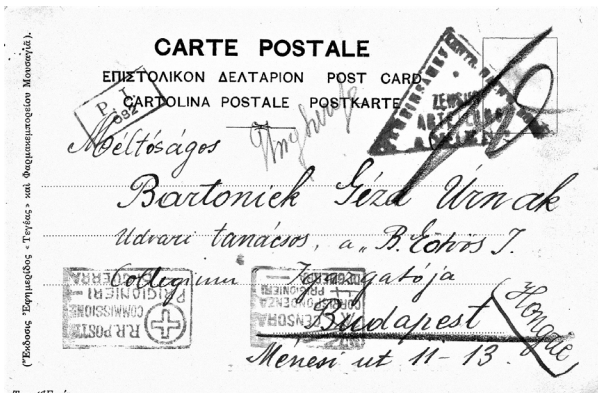 CARTE POSTALE
ΕΠΙΣΤΟΛΙΚΟΝ ΔΕΛΤΑΡΙΟΝ POST CARD
CARTOLINA POSTALE POSTKARTE
P. I.
Méltóságos
Bartoniek Géza Urnak
Udvari tanácsos, a „B. Eötvös J.
Collegium Igazgatója
Budapest
Ménesi ut 11-13.
Hongrie
R.R. POSTE
COMMISSIONE
PRIGIONIERI
CENSURA
CORRISPONDENZA
PRIGIONIERI
ZENSUR
(Ἔκδοσις Ἐφημερίδος «Τεγέας» καὶ Φαρμακεμπορείου Μουσαγιᾶ).